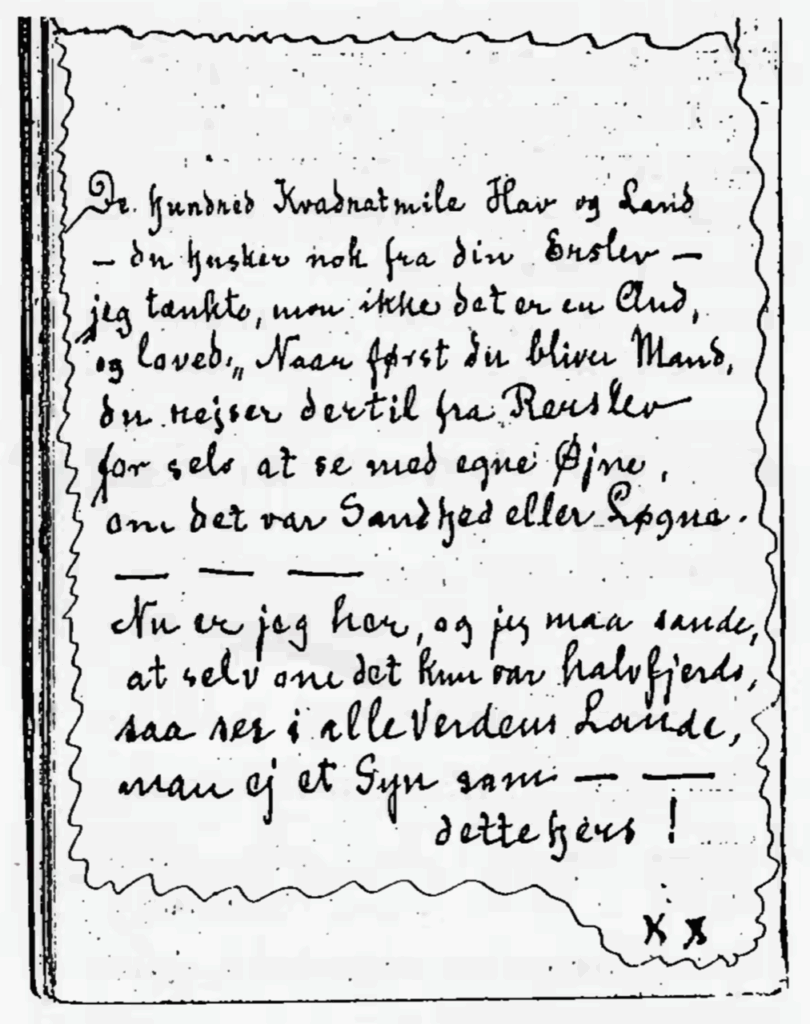 De hundred Kvadratmile Hav og Land
— du husker nok fra din Erslev —
jeg tænkte, mon ikke det er en And,
og loved: „Naar først du bliver Mand,
du rejser dertil fra Rerslev
for selv at se med egne Øjne,
om det var Sandhed eller Løgne.
— — —
Nu er jeg her, og jeg maa sande,
at selv om det kun var halvfjerds,
saa ser i alle Verdens Lande,
man ej et Syn som — —
dette hers !